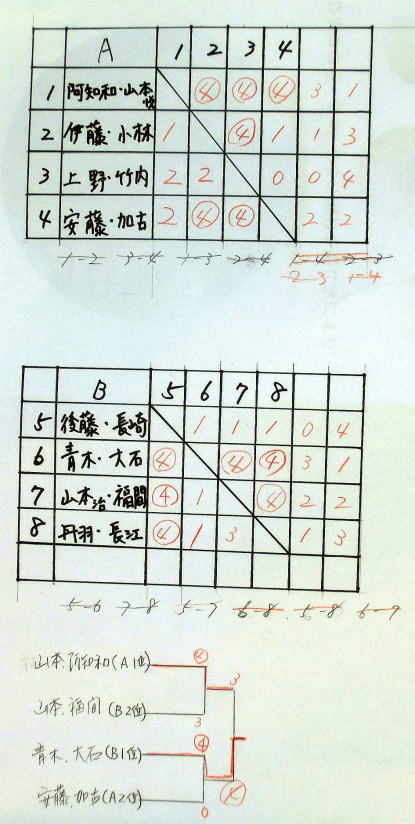 A 1 2 3 4
1 阿知和・山本悦 ④ ④ ④ 3 1
2 伊藤・小林 1 ④ 1 1 3
3 上野・竹内 2 2 0 0 4
4 安藤・加古 2 ④ ④ 2 2
1-2 3-4 1-3 2-4 1-4 2-3
2-3 1-4
B 5 6 7 8
5 後藤・長崎 1 1 1 0 4
6 青木・大石 ④ ④ ④ 3 1
7 山本治・福間 ④ 1 ④ 2 2
8 丹羽・長江 ④ 1 3 1 3
5-6 7-8 5-7 6-8 5-8 6-7
山本.阿知和(A1位) ④
3
山本.福間(B2位) 3
青木.大石(B1位) ④
④
安藤.加古(A2位) 0